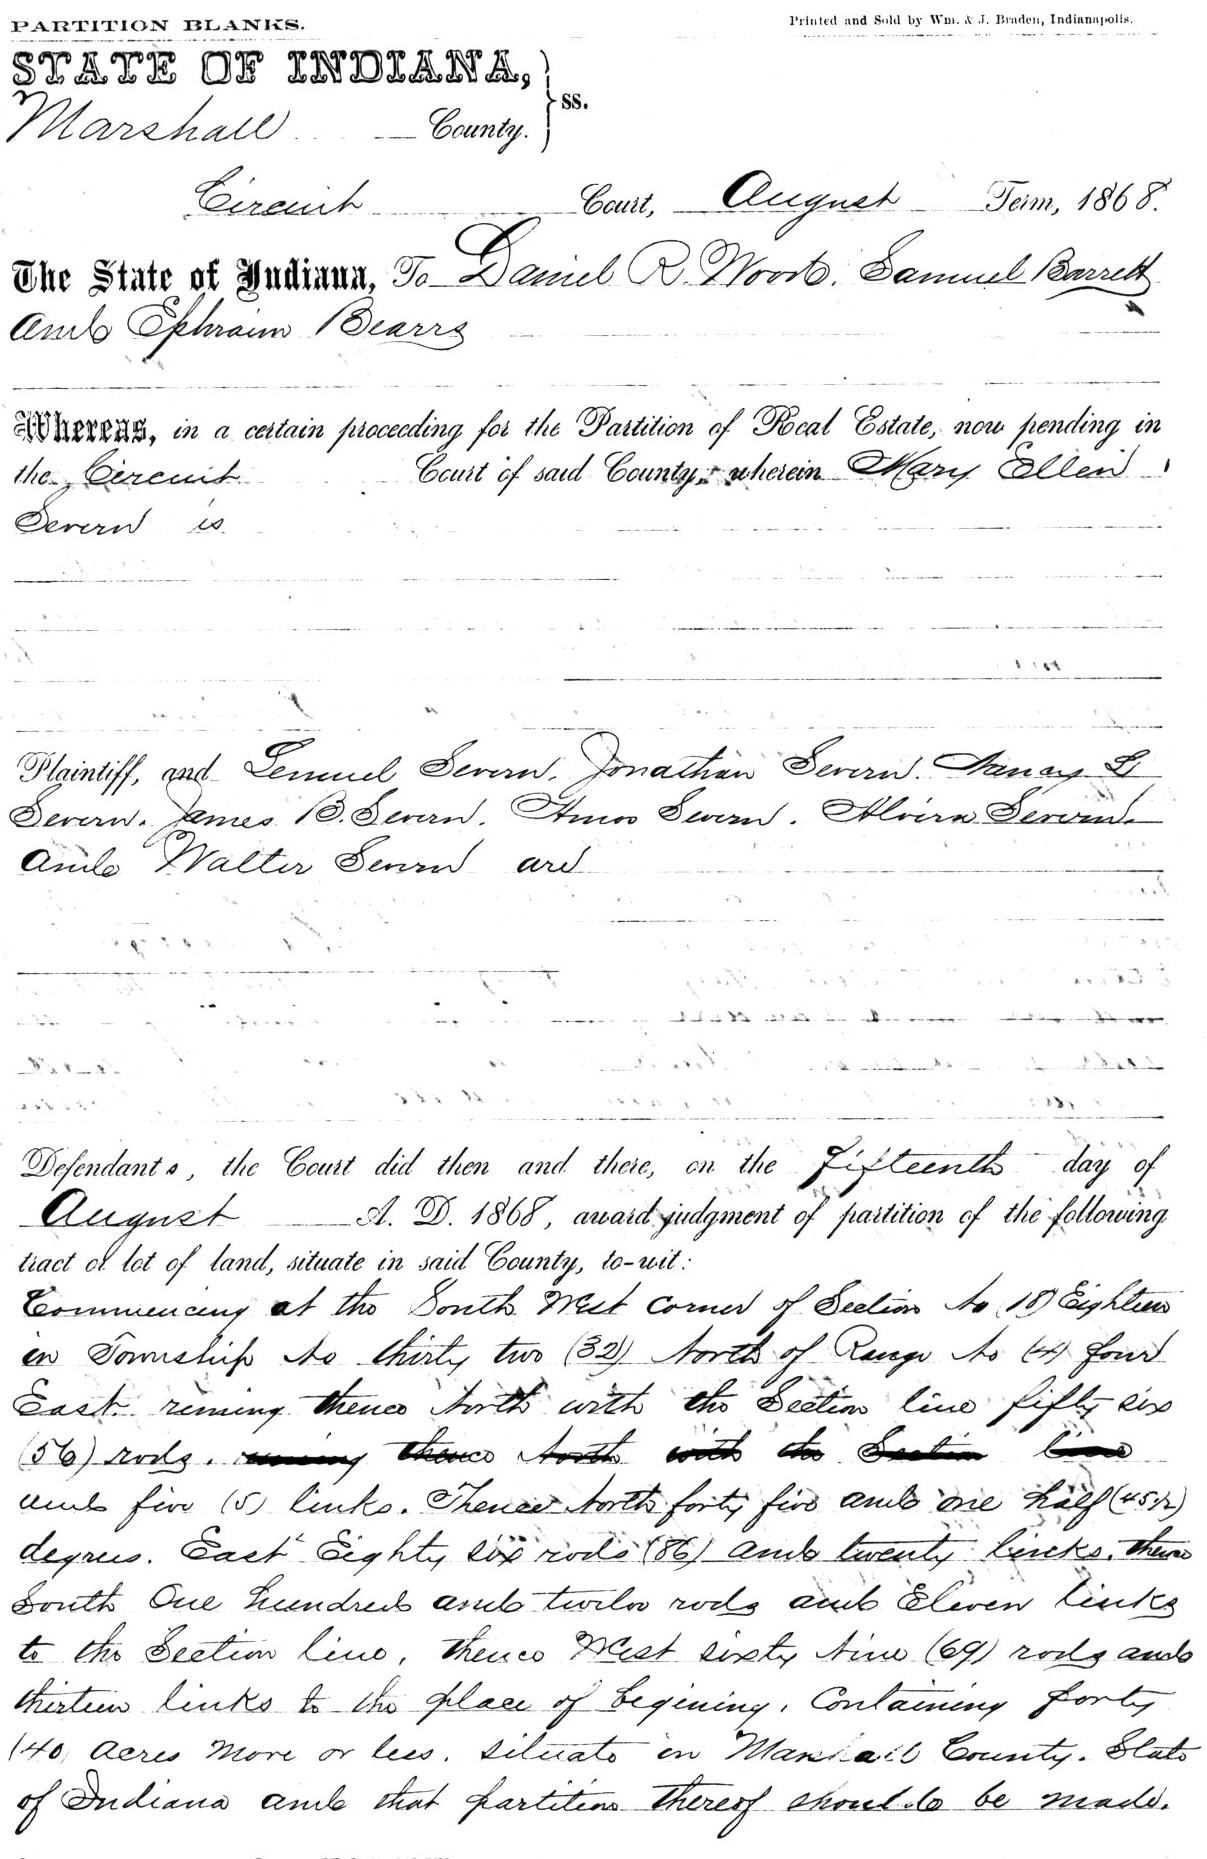 PARTITION BLANKS.
Printed and Sold by Wm. & J. Braden, Indianapolis.
STATE OF INDIANA,
ss.
Marshall County.
Circuit Court, August Term, 1868.
The State of Indiana, To Daniel R. Wood. Samuel Barrett
and Ephraim Bearss
Whereas, in a certain proceeding for the Partition of Real Estate, now pending in
the Circuit Court of said County, wherein Mary Ellen
Severn is
Plaintiff, and Lemuel Severn. Jonathan Severn. Nancy
Severn. James B. Severn. Amos Severn. Alvira Severn.
and Walter Severn are
Defendants, the Court did then and there, on the Fifteenth day of
August A. D. 1868, award judgment of partition of the following
tract or lot of land, situate in said County, to-wit:
Commencing at the South West corner of Section No (18) Eighteen
in Township No thirty two (32) North of Range No (4) four
East. runing thence North with the Section line fifty six
(56) rods. runing thence North with the Section line
and five (5) links. Thence North forty five and one half (45 1/2)
degrees. East Eighty six rods (86) and twenty links. thence
South One hundred and twelve rods and Eleven links
to the Section line, thence West sixty Nine (69) rods and
thirteen links to the place of begining. Containing forty
(40) Acres More or less. situate in Marshall County. State
of Indiana and that partition thereof should be made.